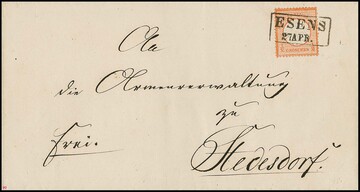 ESENS
27 APR.
An
die Armenverwaltung
zu
frei.
Stedesdorf.